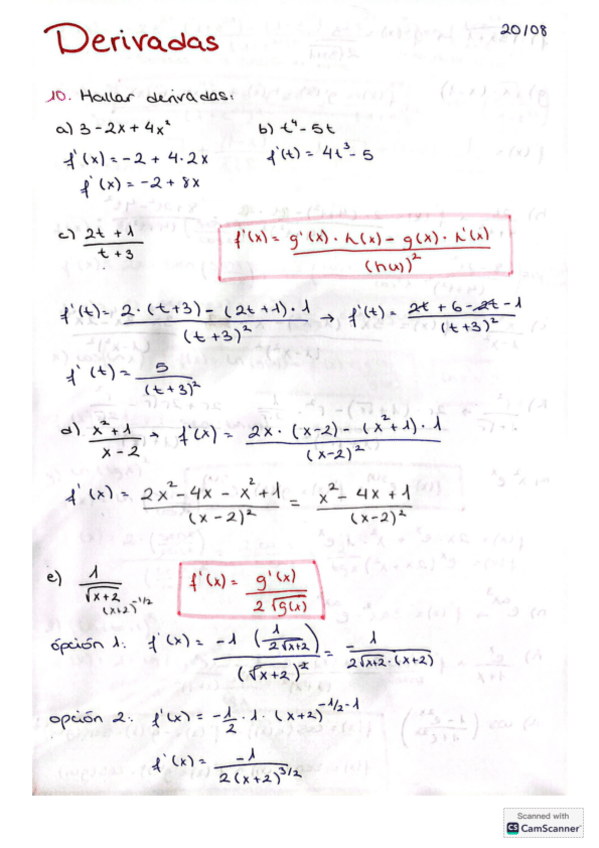 Derivadas
20/08
10. Hallar derivadas.
a) 3 - 2x + 4x²   b) t⁴ - 5t
f'(x) = -2 + 4·2x   f'(t) = 4t³ - 5
f'(x) = -2 + 8x
c) (2t + 1)/(t + 3)   f'(x) = (g'(x) · h(x) - g(x) · h'(x))/(h(x))²
f'(t) = (2·(t+3) - (2t+1)·1)/(t+3)² → f'(t) = (2t + 6 - 2t - 1)/(t+3)²
f'(t) = 5/(t+3)²
d) (x²+1)/(x-2) → f'(x) = (2x·(x-2) - (x²+1)·1)/(x-2)²
f'(x) = (2x² - 4x - x² + 1)/(x-2)² = (x² - 4x + 1)/(x-2)²
e) 1/√(x+2)   f'(x) = g'(x)/(2√g(x))
(x+2)^(-1/2)
opción 1. f'(x) = -1 (1/(2√(x+2)))/(√(x+2))² = -1/(2√(x+2)·(x+2))
opción 2. f'(x) = -1/2 · 1 · (x+2)^(-1/2-1)
f'(x) = -1/(2(x+2)^(3/2))
Scanned with
CS CamScanner